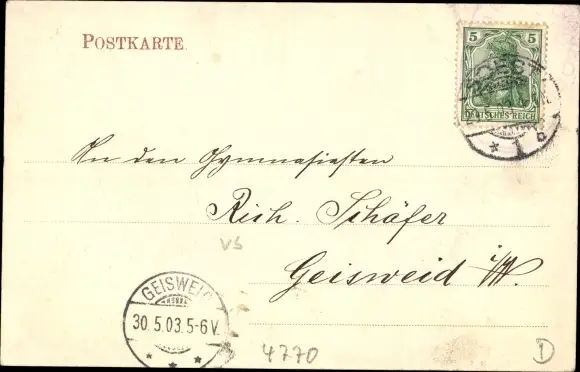 POSTKARTE
5 5
DEUTSCHES REICH
SOEST
An den Gymnasiasten
Rich. Schäfer
VS
Geisweid i/W.
GEISWEID
30.5.03.5-6V.
4770
D